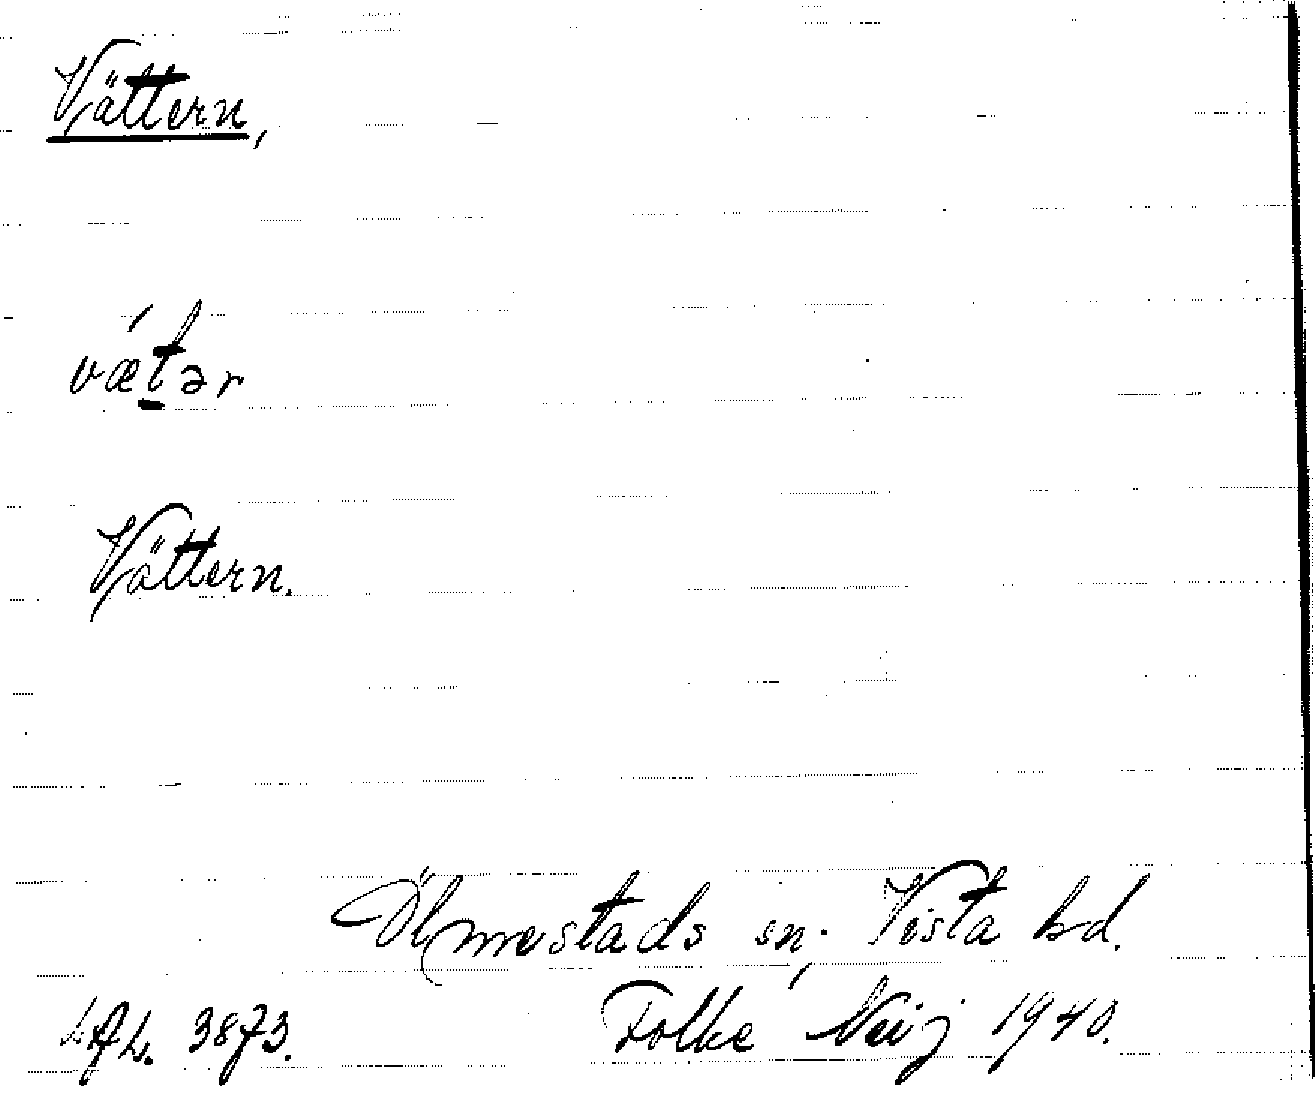 Vättern,
vǽtər
Vättern.
Ölmestads sn, Vista hd.
3873. Folke Neij 1940.